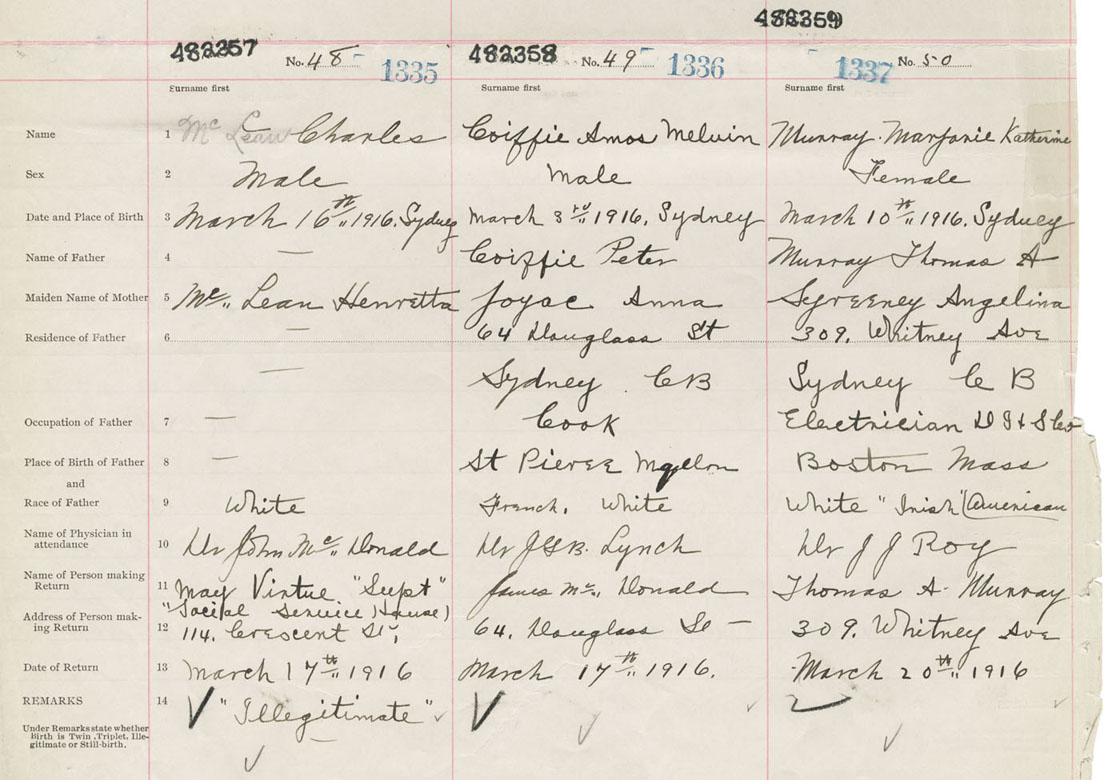 482359
482357 No. 48 1335 482358 No. 49 1336 1337 No. 50
Surname first Surname first Surname first
Name 1 Mc Lean Charles Coiffie Amos Melvin Murray Marjorie Katherine
Sex 2 Male Male Female
Date and Place of Birth 3 March 16th 1916. Sydney March 3rd 1916. Sydney March 10th 1916. Sydney
Name of Father 4 — Coiffie Peter Murray Thomas A
Maiden Name of Mother 5 Mc Lean Henretta Joyac Anna Angelina
Residence of Father 6 — 64 Douglass St 309. Whitney Ave
— Sydney CB Sydney C B
Occupation of Father 7 — Cook Electrician D I & S Co
Place of Birth of Father 8 — St Pierre Boston Mass
and
Race of Father 9 White French, White White "Irish" (American
Name of Physician in
attendance 10 Dr John Mc Donald Dr Lynch Dr J J Roy
Name of Person making
Return 11 May Virtue "Supt" James Mc Donald Thomas A. Murray
"Social Service House)
Address of Person mak-
ing Return 12 114. Crescent St, 64. Douglass St — 309. Whitney Ave
Date of Return 13 March 17th 1916 March 17th 1916. March 20th 1916
REMARKS 14 "Illegitimate"
Under Remarks state whether
Birth is Twin, Triplet, Ille-
gitimate or Still-birth.